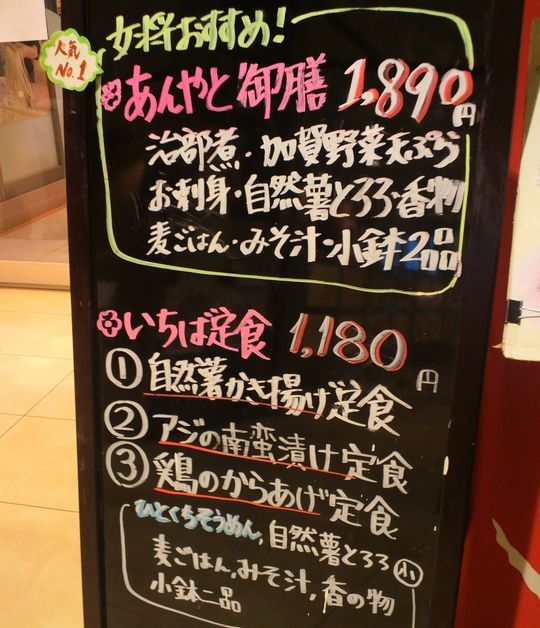 女将おすすめ!
人気
No.1
あんやと御膳 1,890円
治部煮・加賀野菜天ぷら
お刺身・自然薯とろろ・香物
麦ごはん・みそ汁・小鉢2品
いちば定食 1,180円
①自然薯かき揚げ定食
②アジの南蛮漬け定食
③鶏のからあげ定食
ひとくちそうめん,自然薯とろろ小
麦ごはん,みそ汁,香の物
小鉢一品